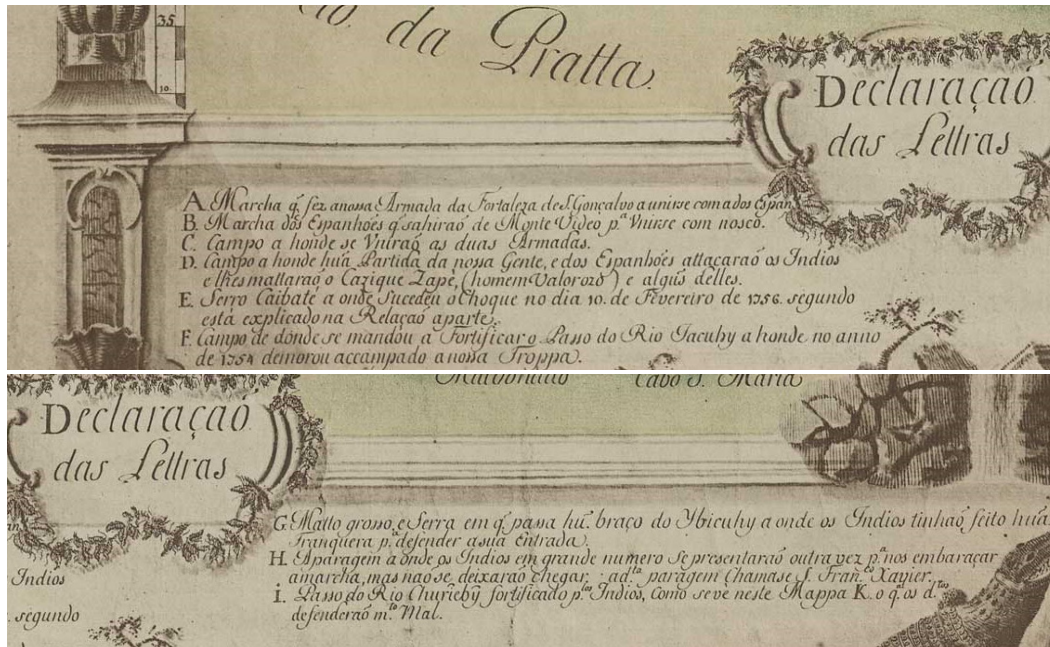 35
da Pratta.
10.
Declaraçaõ
das Lettras
A. Marcha q̃ fez a nossa Armada da Fortaleza de S. Gonçalvo a unirse com a dos Espan.
B. Marcha dos Espanhões q̃ sahiraõ de Monte Video p.ª Vnirse com nosco.
C. Campo a honde se Vniraõ as duas Armadas.
D. Campo a honde huã Partida da nossa Gente, e dos Espanhões attacaraõ os Indios
e lhes mattaraõ o Cazique Zapé, (homem Valorozo) e algũs delles.
E. Serro Caibaté a onde Sucedeu o Choque no dia 10. de Fevereiro de 1756. segundo
está explicado na Relaçaõ aparte.
F. Campo de donde se mandou a Fortificar o Passo do Rio Jacuhy a honde no anno
de 1754 demorou accampado a nossa Troppa.
Cabo S. Maria
Declaraçaõ
das Lettras
G. Matto grosso, e Serra em q̃ passa hũ braço do Ybicuhy a onde os Indios tinhaõ feito huã
Tranquera p.ª defender a sua Entrada.
H. Aparagem a onde os Indios em grande numero se presentaraõ outra vez p.ª nos embaraçar
a marcha, mas naõ se deixaraõ chegar, a d.ta paragem Chamase S. Fran.co Xavier.
Indios
I. Passo do Rio Churiebÿ fortificado p.los Indios, Como se ve neste Mappa K. o q.l os d.tos
segundo
defenderaõ m.to Mal.